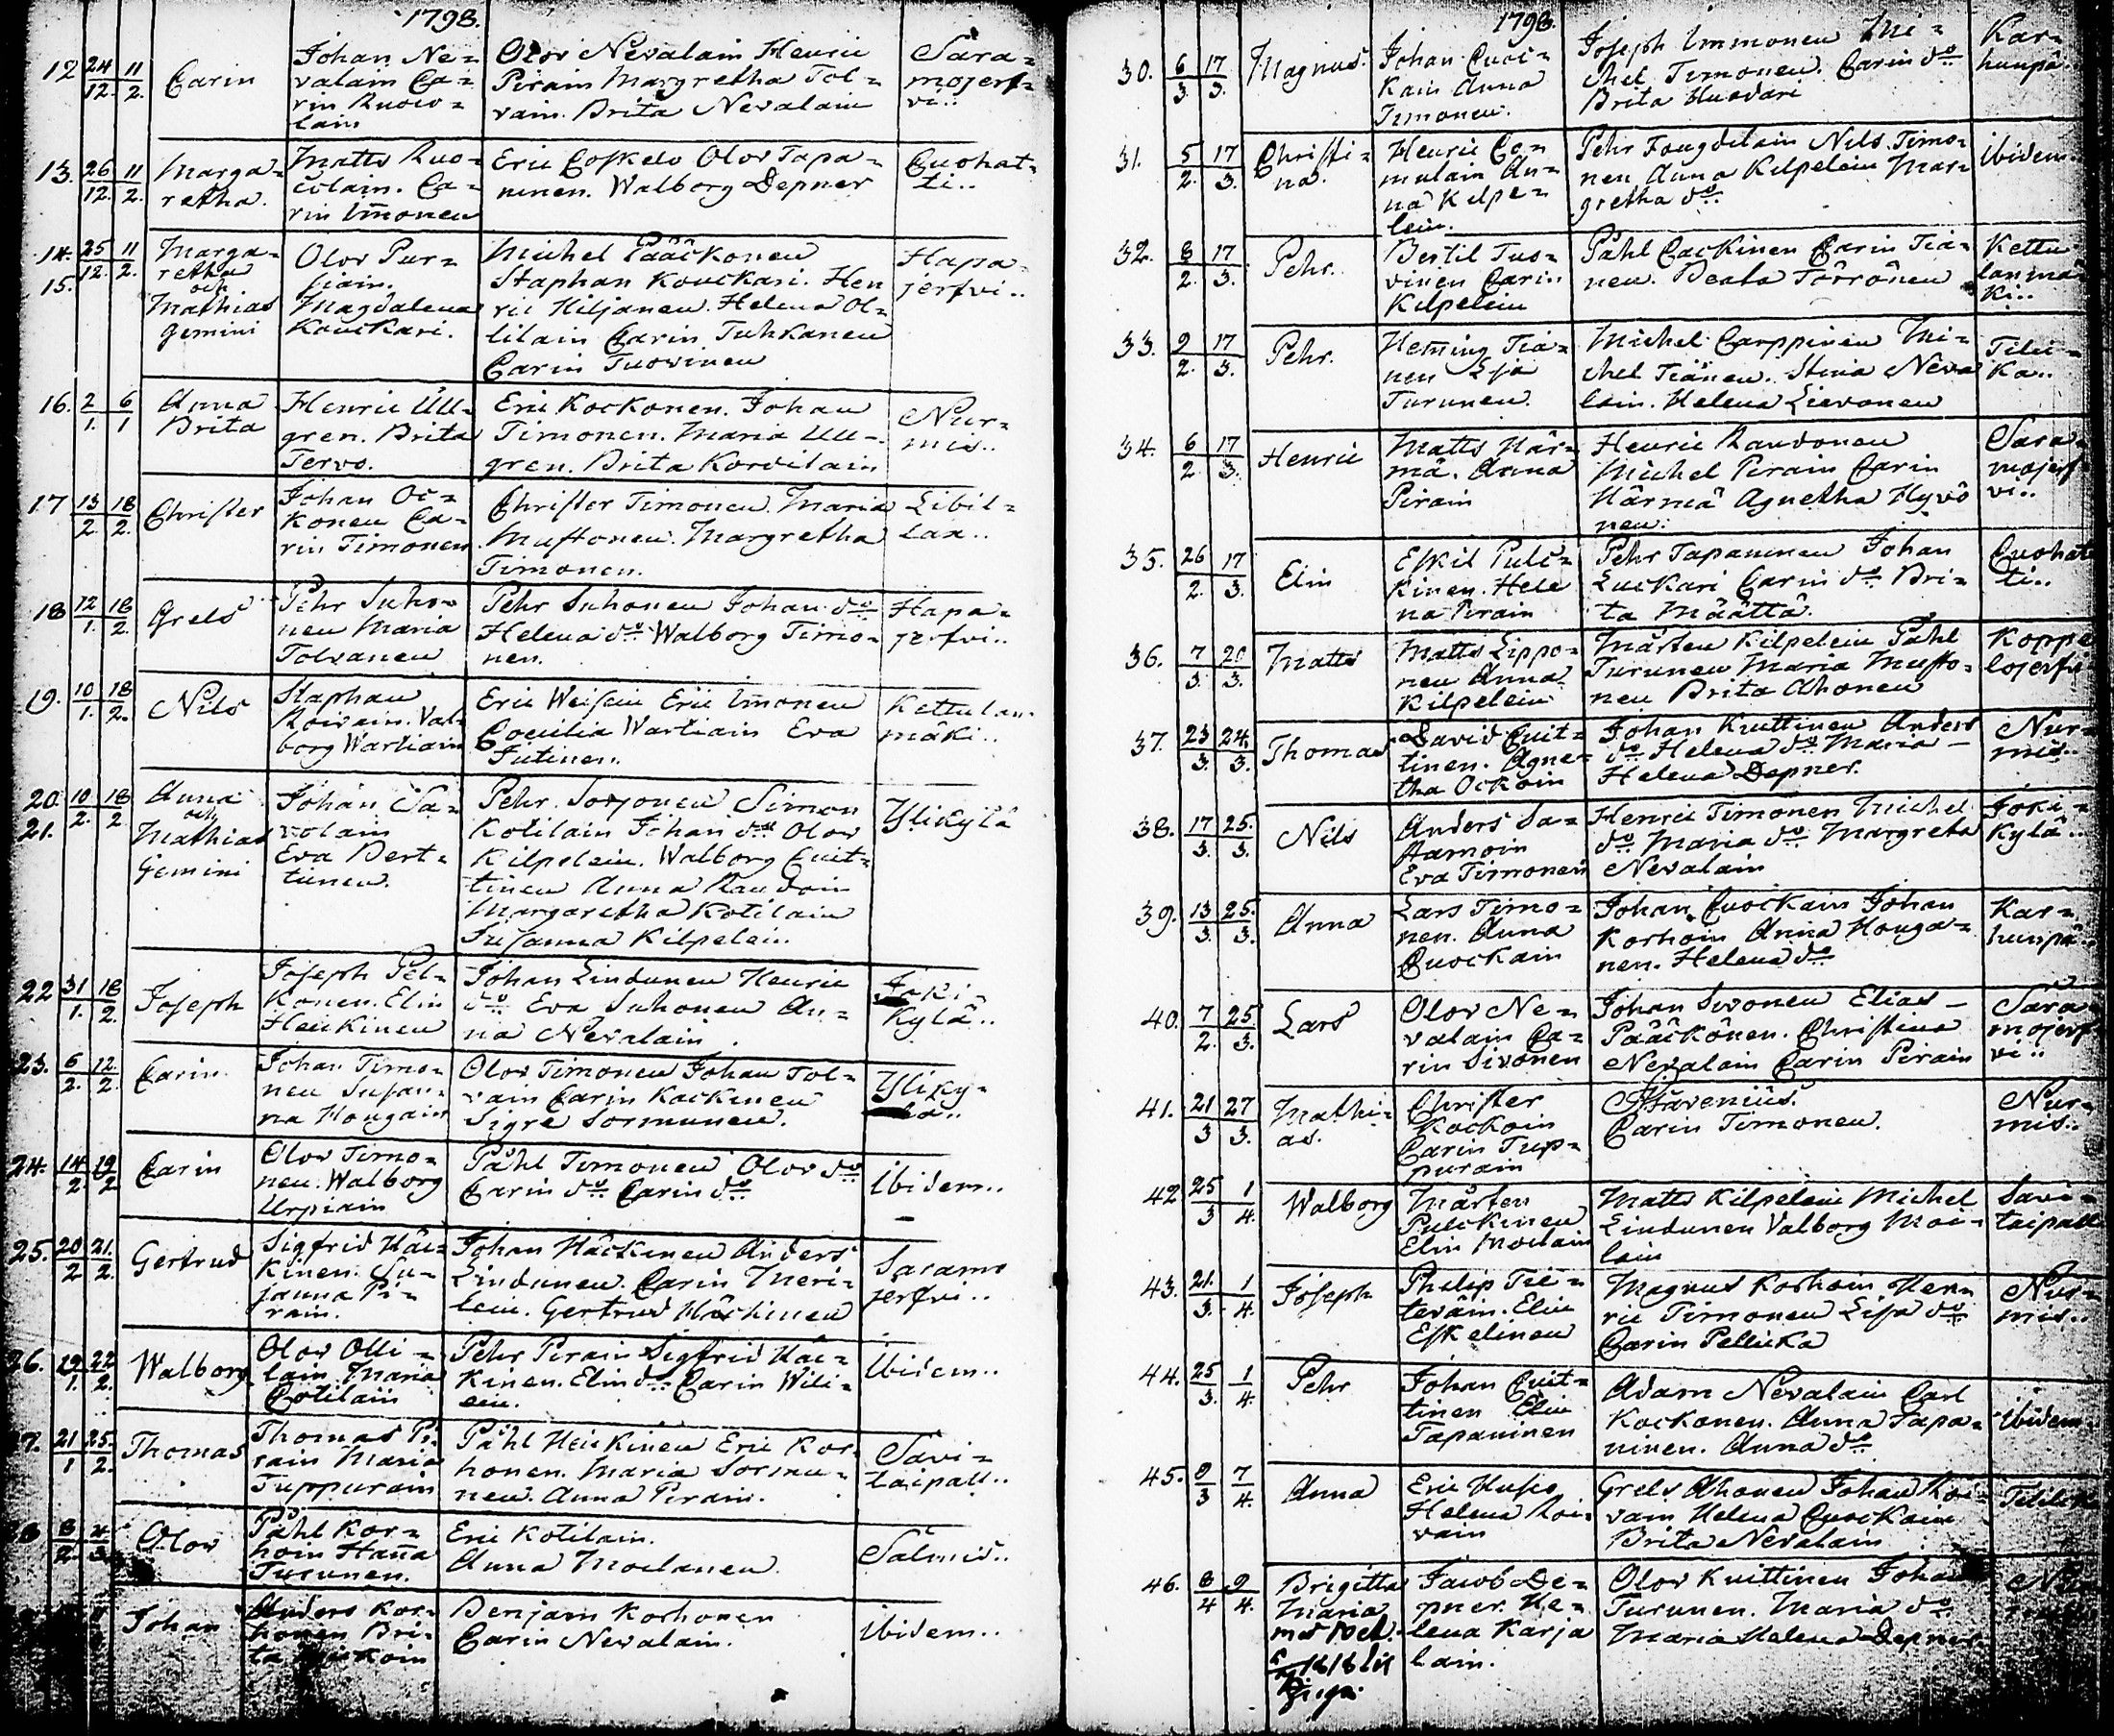 1798.
12 24/12. 11/2. Carin
Johan Ne=
valain Ca=
rin Ruow=
lain
Olov Nevalain Henric
Pirain Margretha Tol=
vain. Brita Nevalain
Sara=
mojerf=
vi..
13. 26/12. 11/2. Marga=
retha.
Matts Ruo=
Ca=
rin Im̄onen
Eric Coskelo Olov Tapa=
ninen. Walborg Depner
Cuohat=
ti..
14. 25/12. 11/2.
15.
Marga=
retha
och
Mathias
gemini
Olov Pur=
siain.
Magdalena
Kouckari.
Michel Pääckonen
Staphan Kouckari. Hen
ric Hiljanen. Helena Ol=
lilain Carin Tuhkanen
Carin Tuovinen
Hapa=
jerfvi..
16. 2/1. 6/1 Anna
Brita
Henric Ull=
gren. Brita
Tervo.
Eric Kockonen. Johan
Timonen. Maria Ull=
gren. Brita Korvilain
Nur=
mis..
17 13/2. 18/2. Christer
Johan Oc=
konen Ca=
rin Timonen
Christer Timonen. Maria
Mustonen. Margretha
Timonen.
Libil=
lax..
18 12/1. 18/2. Grels
Pehr Suho=
nen Maria
Tolvanen
Pehr Suhonen Johan do
Helena do Walborg Timo=
nen.
Hapa=
jerfvi..
19. 10/1. 18/2. Nils
Staphan
Roivain. Val=
borg Wartiain
Eric Weisein Eric Im̄onen
Coecilia Wartiain Eva
Jutinen.
Kettulan=
mäki..
20. 10/2. 18/2
21.
Anna
och
Mathias
Gemini
Johan Sa=
volain
Eva Pert=
tunen.
Pehr Sorjonen Simon
Kotilain Johan do Olov
Kilpelein. Walborg Cuit=
tinen Anna Raudoin
Margaretha Kotilain
Susanna Kilpelein.
Ylikylä
22 31/1. 18/2. Joseph
Joseph Pel=
konen. Elin
Heickinen
Johan Lindunen Henric
do Eva Suhonen An=
na Nevalain.
Joki=
kylä..
23. 6/2. 12./2. Carin
Johan Timo=
nen Susan=
na Hougain
Olov Timonen Johan Tol=
vain Carin Kackinen
Sigre Sormunen.
Yliky=
lä..
24. 14/2 19/2 Carin
Olov Timo=
nen. Walborg
Urpiain
Påhl Timonen Olov do
Carin do Carin do
Ibidem..
25. 20/2 21./2. Gertrud
Sigfrid Häi=
kinen. Su=
sanna Pi=
rain.
Johan Häckinen Anders
Lindunen. Carin Meri=
lein. Gertrud Häckinen
Saramo
jerfvi..
26. 19/1. 22/2. Walborg
Olov Olli=
lain Maria
Cotilain
Pehr Pirain Sigfrid Häi=
kinen. Elin do Carin Wili=
ein.
Ibidem..
27. 21/1 25./2. Thomas
Thomas Pi=
rain Maria
Tuppurain
Påhl Heickinen Eric Kor=
honen. Maria Sormu=
nen. Anna Pirain.
Savi=
taipall..
28 8/2. 4/3. Olov
Påhl Kor=
hoin Han̄a
Turunen.
Eric Kotilain.
Anna Moilanen.
Salmis..
Johan
Anders Kor=
honen Bri=
ta
Benjam Korhonen
Carin Nevalain.
Ibidem..
1798.
30. 6/3. 17/3. Magnus
Johan Cuoc=
kain Anna
Timonen.
Joseph Immonen Mi=
chel Timonen. Carin do
Brita Huovari
Kar=
hunpä..
31. 5/2. 17/3. Christi=
na.
Henric Co=
mulain An=
na Kilpe=
lein.
Pehr Fougdilain Nils Timo=
nen Anna Kilpelein Mar=
gretha do
Ibidem..
32. 8/2. 17/3. Pehr.
Bertil Tuo=
vinen Carin
Kilpelein
Påhl Cackinen Carin Tiä=
nen. Beata Törrönen
Kettu
lanmä
ki..
33. 9/2. 17/3. Pehr.
Hem̄ing Tiä=
nen Lisa
Turunen.
Michel Carppinen Mi=
chel Tiänen. Stina Neva
lain. Helena Lievonen
Teili=
ka..
34. 6/2. 17/3. Henric
Matts Här=
mä. Anna
Pirain
Henric Raudonen
Michel Pirain Carin
Härmä Agnetha Hyvö
nen.
Sara=
mojerf
vi..
35. 26/2. 17/3. Elin
Eskil Pulc=
kinen. Hele
na Pirain
Pehr Tapaninen Johan
Luckari Carin do Bri=
ta Määttä.
Cuohat
ti..
36. 7/3. 20/3. Matts
Matts Lippo=
nen Anna
Kilpelein
Mårten Kilpelein Påhl
Turunen Maria Musto=
nen Brita Ahonen
Koppe
lojerfvi
37. 23/3. 24./3. Thomas
David Cuit=
tinen. Agne=
tha Ockoin
Johan Kuittinen Anders
do Helena do Maria —
Helena Depner.
Nur=
mis..
38. 17/3. 25./3. Nils
Anders Sa=
stamoin
Eva Timonen
Henric Timonen Michel
do Maria do Margreta
Nevalain
Joki=
kylä..
39. 13/3. 25./3. Anna
Lars Timo=
nen. Anna
Cuockain
Johan Cuockain Johan
Korhoin Anna Houga=
nen. Helena do
Kar=
hunpä..
40. 7/2. 25/3. Lars
Olov Ne=
valain Ca=
rin Sivonen
Johan Sivonen Elias —
Pääckönen. Christina
Nevalain Carin Pirain
Sara=
mojerf
vi..
41. 21/3 27/3. Mathi=
as.
Christer
Kockoin
Carin Tup=
purain
Stravenius.
Carin Timonen.
Nur=
mis..
42 25/3 1/4. Walborg
Mårten
Pulckinen
Elin Moilain
Matts Kilpelein Michel
Lindunen Valborg Moi=
lain
Savi=
taipall
43. 21./3. 1/4. Joseph
Philip Tie=
täväin. Elin
Eskelinen
Magnus Korhoin Hen=
ric Timonen Lisa do
Carin Pellicka
Nur=
mis..
44. 25/3. 1/4. Pehr
Johan Cuit=
tinen Elin
Tapaninen
Adam Nevalain Carl
Kockonen. Anna Tapa=
ninen. Anna do
ibidem.
45. 9/3 7/4. Anna
Eric Husso
Helena Roi=
vain
Grels Ahonen Johan Roi=
vain Helena Cuockain
Brita Nevalain
46. 8/4 9/4. Brigitta
Maria
Jacob De=
pner. He=
lena Karja
lain.
Olov Kuittinen Johan
Turunen. Maria do
Maria Helena Depner.